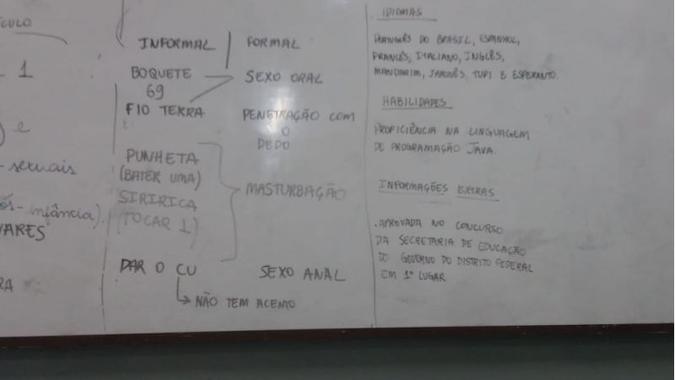 CULO
1
e
-sexuais
ós-infância).
VARES
RA
INFORMAL | FORMAL
BOQUETE
69
SEXO ORAL
FIO TERRA
PENETRAÇÃO COM
O
DEDO
PUNHETA
(BATER UMA)
SIRIRICA
(TOCAR 1)
MASTURBAÇÃO
DAR O CU
SEXO ANAL
NÃO TEM ACENTO
IDIOMAS
PORTUGUÊS DO BRASIL, ESPANHOL,
FRANCÊS, ITALIANO, INGLÊS,
MANDARIM, JAPONÊS, TUPI E ESPERANTO.
HABILIDADES
PROFICIÊNCIA NA LINGUAGEM
DE PROGRAMAÇÃO JAVA.
INFORMAÇÕES EXTRAS
. APROVADA NO CONCURSO
DA SECRETARIA DE EDUCAÇÃO
DO GOVERNO DO DISTRITO FEDERAL
EM 1º LUGAR